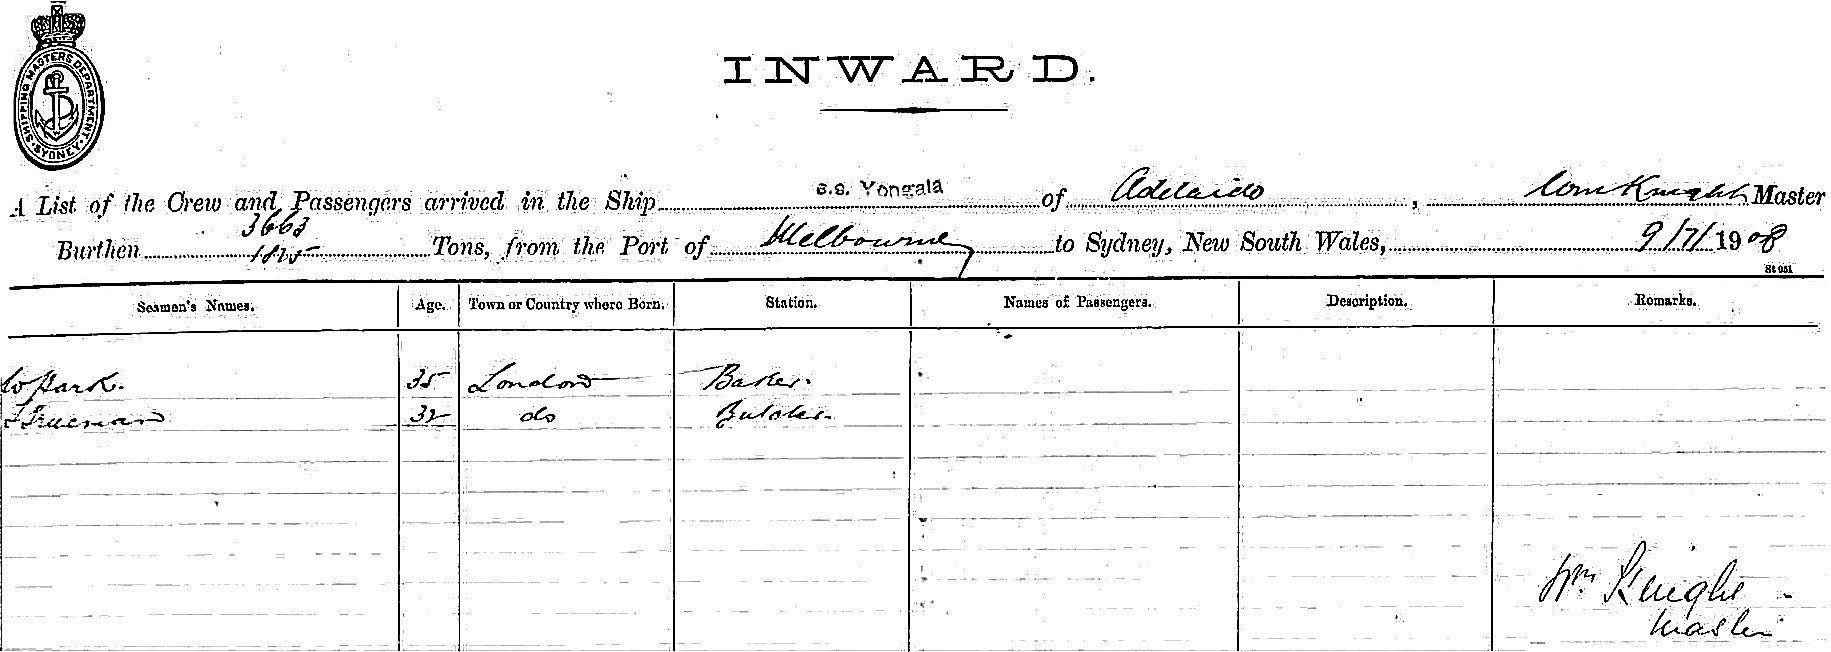 SHIPPING MASTERS DEPARTMENT. SYDNEY
INWARD.
A List of the Crew and Passengers arrived in the Ship s.s. Yongala of Adelaide, Wm Knight Master
3663
Burthen 1825 Tons, from the Port of Melbourne to Sydney, New South Wales, 9/7/1908
St 051
Seamen's Names. Age. Town or Country where Born. Station. Names of Passengers. Description. Remarks.
W Park. 35 London Baker.
Trueman 32 do Butcher.
Wm Knight
Master